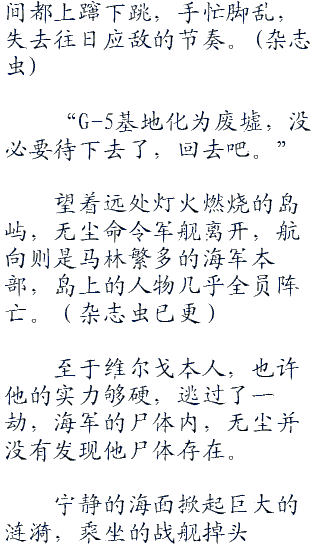 间都上蹿下跳，手忙脚乱，
失去往日应敌的节奏。(杂志
虫)
“G-5基地化为废墟，没
必要待下去了，回去吧。”
望着远处灯火燃烧的岛
屿，无尘命令军舰离开，航
向则是马林繁多的海军本
部，岛上的人物几乎全员阵
亡。（杂志虫已更）
至于维尔戈本人，也许
他的实力够硬，逃过了一
劫，海军的尸体内，无尘并
没有发现他尸体存在。
宁静的海面掀起巨大的
涟漪，乘坐的战舰掉头